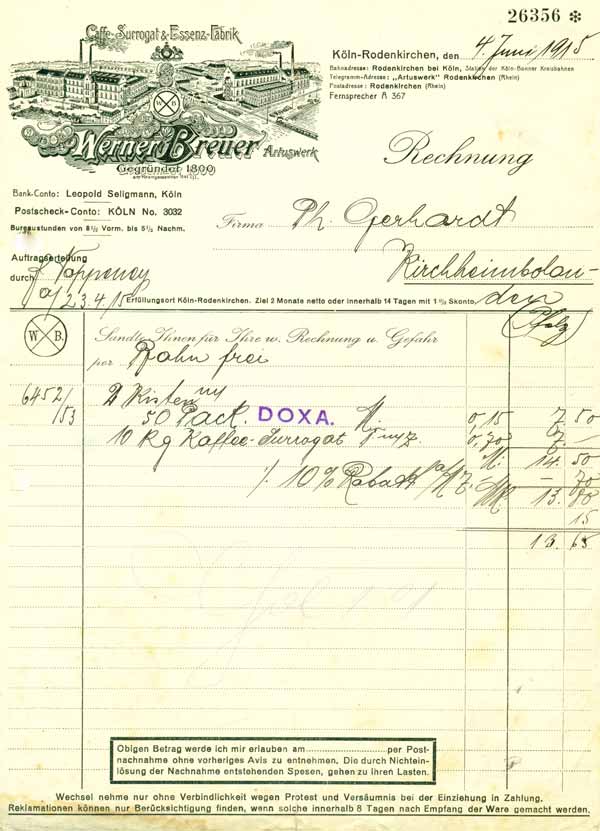 26356 ✻
Caffe-Surrogat & Essenz-Fabrik
Werner Breuer Artuswerk
Gegründet 1800
Köln-Rodenkirchen, den 4. Juni 1915
Bahnadresse: Rodenkirchen bei Köln, Station der Köln-Bonner Kreisbahnen
Telegramm-Adresse: „Artuswerk" Rodenkirchen (Rhein)
Postadresse: Rodenkirchen (Rhein)
Fernsprecher A 367
Rechnung
Bank-Conto: Leopold Seligmann, Köln
Postscheck-Conto: KÖLN No. 3032
Bureaustunden von 8½ Vorm. bis 5½ Nachm.
Firma Ph. Gerhardt
Kirchheimbolanden
(Pfalz)
Auftragserteilung
durch
23.4.15
Erfüllungsort Köln-Rodenkirchen. Ziel 2 Monate netto oder innerhalb 14 Tagen mit 1% Skonto.
W B.
Sandte Ihnen für Ihre w. Rechnung u. Gefahr
per Bahn frei
6452/53 2 Kisten
50 Pack. DOXA. M. 0,15 7. 50
10 Kg Kaffee-Surrogat 0,70 7. —
M. 14. 50
% 10% Rabatt — 70
M. 13. 80
15
13. 65
Obigen Betrag werde ich mir erlauben am per Post-
nachnahme ohne vorheriges Avis zu entnehmen. Die durch Nichtein-
lösung der Nachnahme entstehenden Spesen, gehen zu Ihren Lasten.
Wechsel nehme nur ohne Verbindlichkeit wegen Protest und Versäumnis bei der Einziehung in Zahlung.
Reklamationen können nur Berücksichtigung finden, wenn solche innerhalb 8 Tagen nach Empfang der Ware gemacht werden.